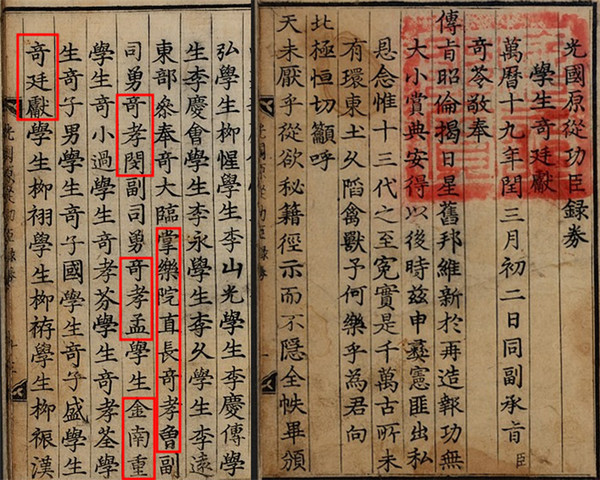 光國原從功臣錄券
學生奇廷獻
萬曆十九年閏三月初二日同副承旨臣
奇苓敬奉
傳旨昭倫揭日星舊邦維新於再造報功無
大小賞典安得以後時茲申彝憲匪出私
恩念惟十三代之至冤實是千萬古所未
有環東土久陷禽獸予何樂乎為君向
北極恒切籲呼
天未厭乎從欲秘籍徑示而不隱全帙畢頒
弘學生柳惺學生李山光學生李慶傳學
生李慶會學生李永學生李久學生李遠
東部參奉奇大臨掌樂院直長奇孝曾副
司勇奇孝閔副司勇奇孝孟學生金南重
學生奇小過學生奇孝芬學生奇孝荃學
生奇子男學生奇子國學生奇子盛學生
奇廷獻學生柳栩學生柳袸學生柳裖漢